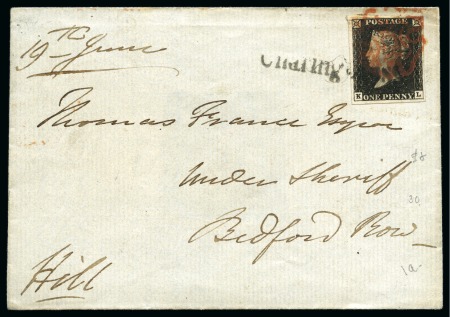 19th June
Charing
POSTAGE
K ONE PENNY L
Thomas France Esqre
Under Sheriff
Bedford Row
Hill
30
1a